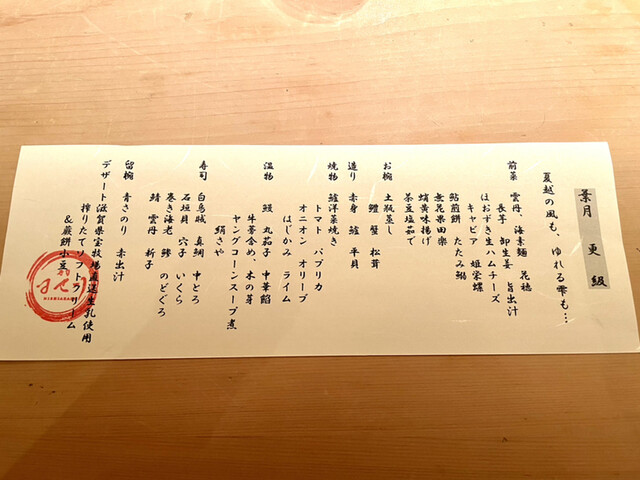 葉月　更級
夏越の風も、ゆれる雫も…
前菜　雲丹、海素麺　花穂
長芋　卸生姜　旨出汁
ほおずき生ハムチーズ
キャビア　姫栄螺
鮎煎餅　たたみ鰯
無花果田楽
蛸黄味揚げ
茶豆塩茹で
お椀　土瓶蒸し
鱧　蟹　松茸
造り　赤身　鱸　平貝
焼物　鱸洋菜焼き
トマト　パプリカ
オニオン　オリーブ
はじかみ　ライム
温物　鰻　丸茄子　中華餡
牛蒡含め、木の芽
ヤングコーンスープ煮
絹さや
寿司　白烏賊　真鯛　中とろ
石垣貝　穴子　いくら
巻き海老　鯵　のどぐろ
鯖　雲丹　新子
留椀　青さのり　赤出汁
デザート滋賀県宝牧場直送生乳使用
搾りたてソフトクリーム
＆蕨餅小豆